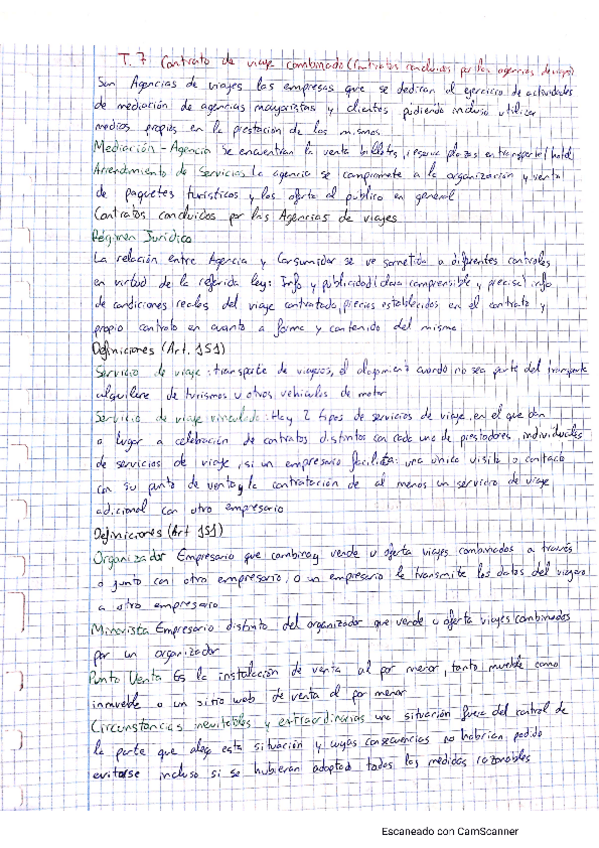 T. 7 Contrato de viaje combinado (Contratos concluidos por las agencias de viajes)
Son Agencias de viajes las empresas que se dedican al ejercicio de actividades
de mediación de agencias mayoristas y clientes pudiendo incluso utilizar
medios propios en la prestación de los mismos
Mediación - Agencia se encuentran la venta billetes, reserva plazas en transporte/hotel
Arrendamiento de Servicios la agencia se compromete a la organización y venta
de paquetes turísticos y los oferta al público en general
Contratos concluidos por las Agencias de viajes
Régimen Jurídico
La relación entre Agencia y Consumidor se ve sometida a diferentes controles
en virtud de la referida ley: Info y publicidad (clara comprensible y precisa) info
de condiciones reales del viaje contratado, precios establecidos en el contrato y
propio contrato en cuanto a forma y contenido del mismo
Definiciones (Art. 151)
Servicio de viaje: transporte de viajeros, el alojamiento cuando no sea parte del transporte
alquiler de turismos u otros vehículos de motor
Servicio de viaje vinculado: Hay 2 tipos de servicios de viaje en el que dan
a lugar a celebración de contratos distintos con cada uno de prestadores individuales
de servicios de viaje, si un empresario facilita: una única visita o contacto
con su punto de venta y la contratación de al menos un servicio de viaje
adicional con otro empresario
Definiciones (Art 151)
Organizador Empresario que combina y vende u oferta viajes combinados a través
o junto con otro empresario, o un empresario le transmite los datos del viajero
a otro empresario
Minorista Empresario distinto del organizador que vende u oferta viajes combinados
por un organizador
Punto Venta Es la instalación de venta al por menor, tanto mueble como
inmueble o un sitio web de venta al por menor
Circunstancias inevitables y extraordinarias una situación fuera del control de
la parte que alega esta situación y cuyas consecuencias no habrían podido
evitarse incluso si se hubieran adoptado todas las medidas razonables
Escaneado con CamScanner